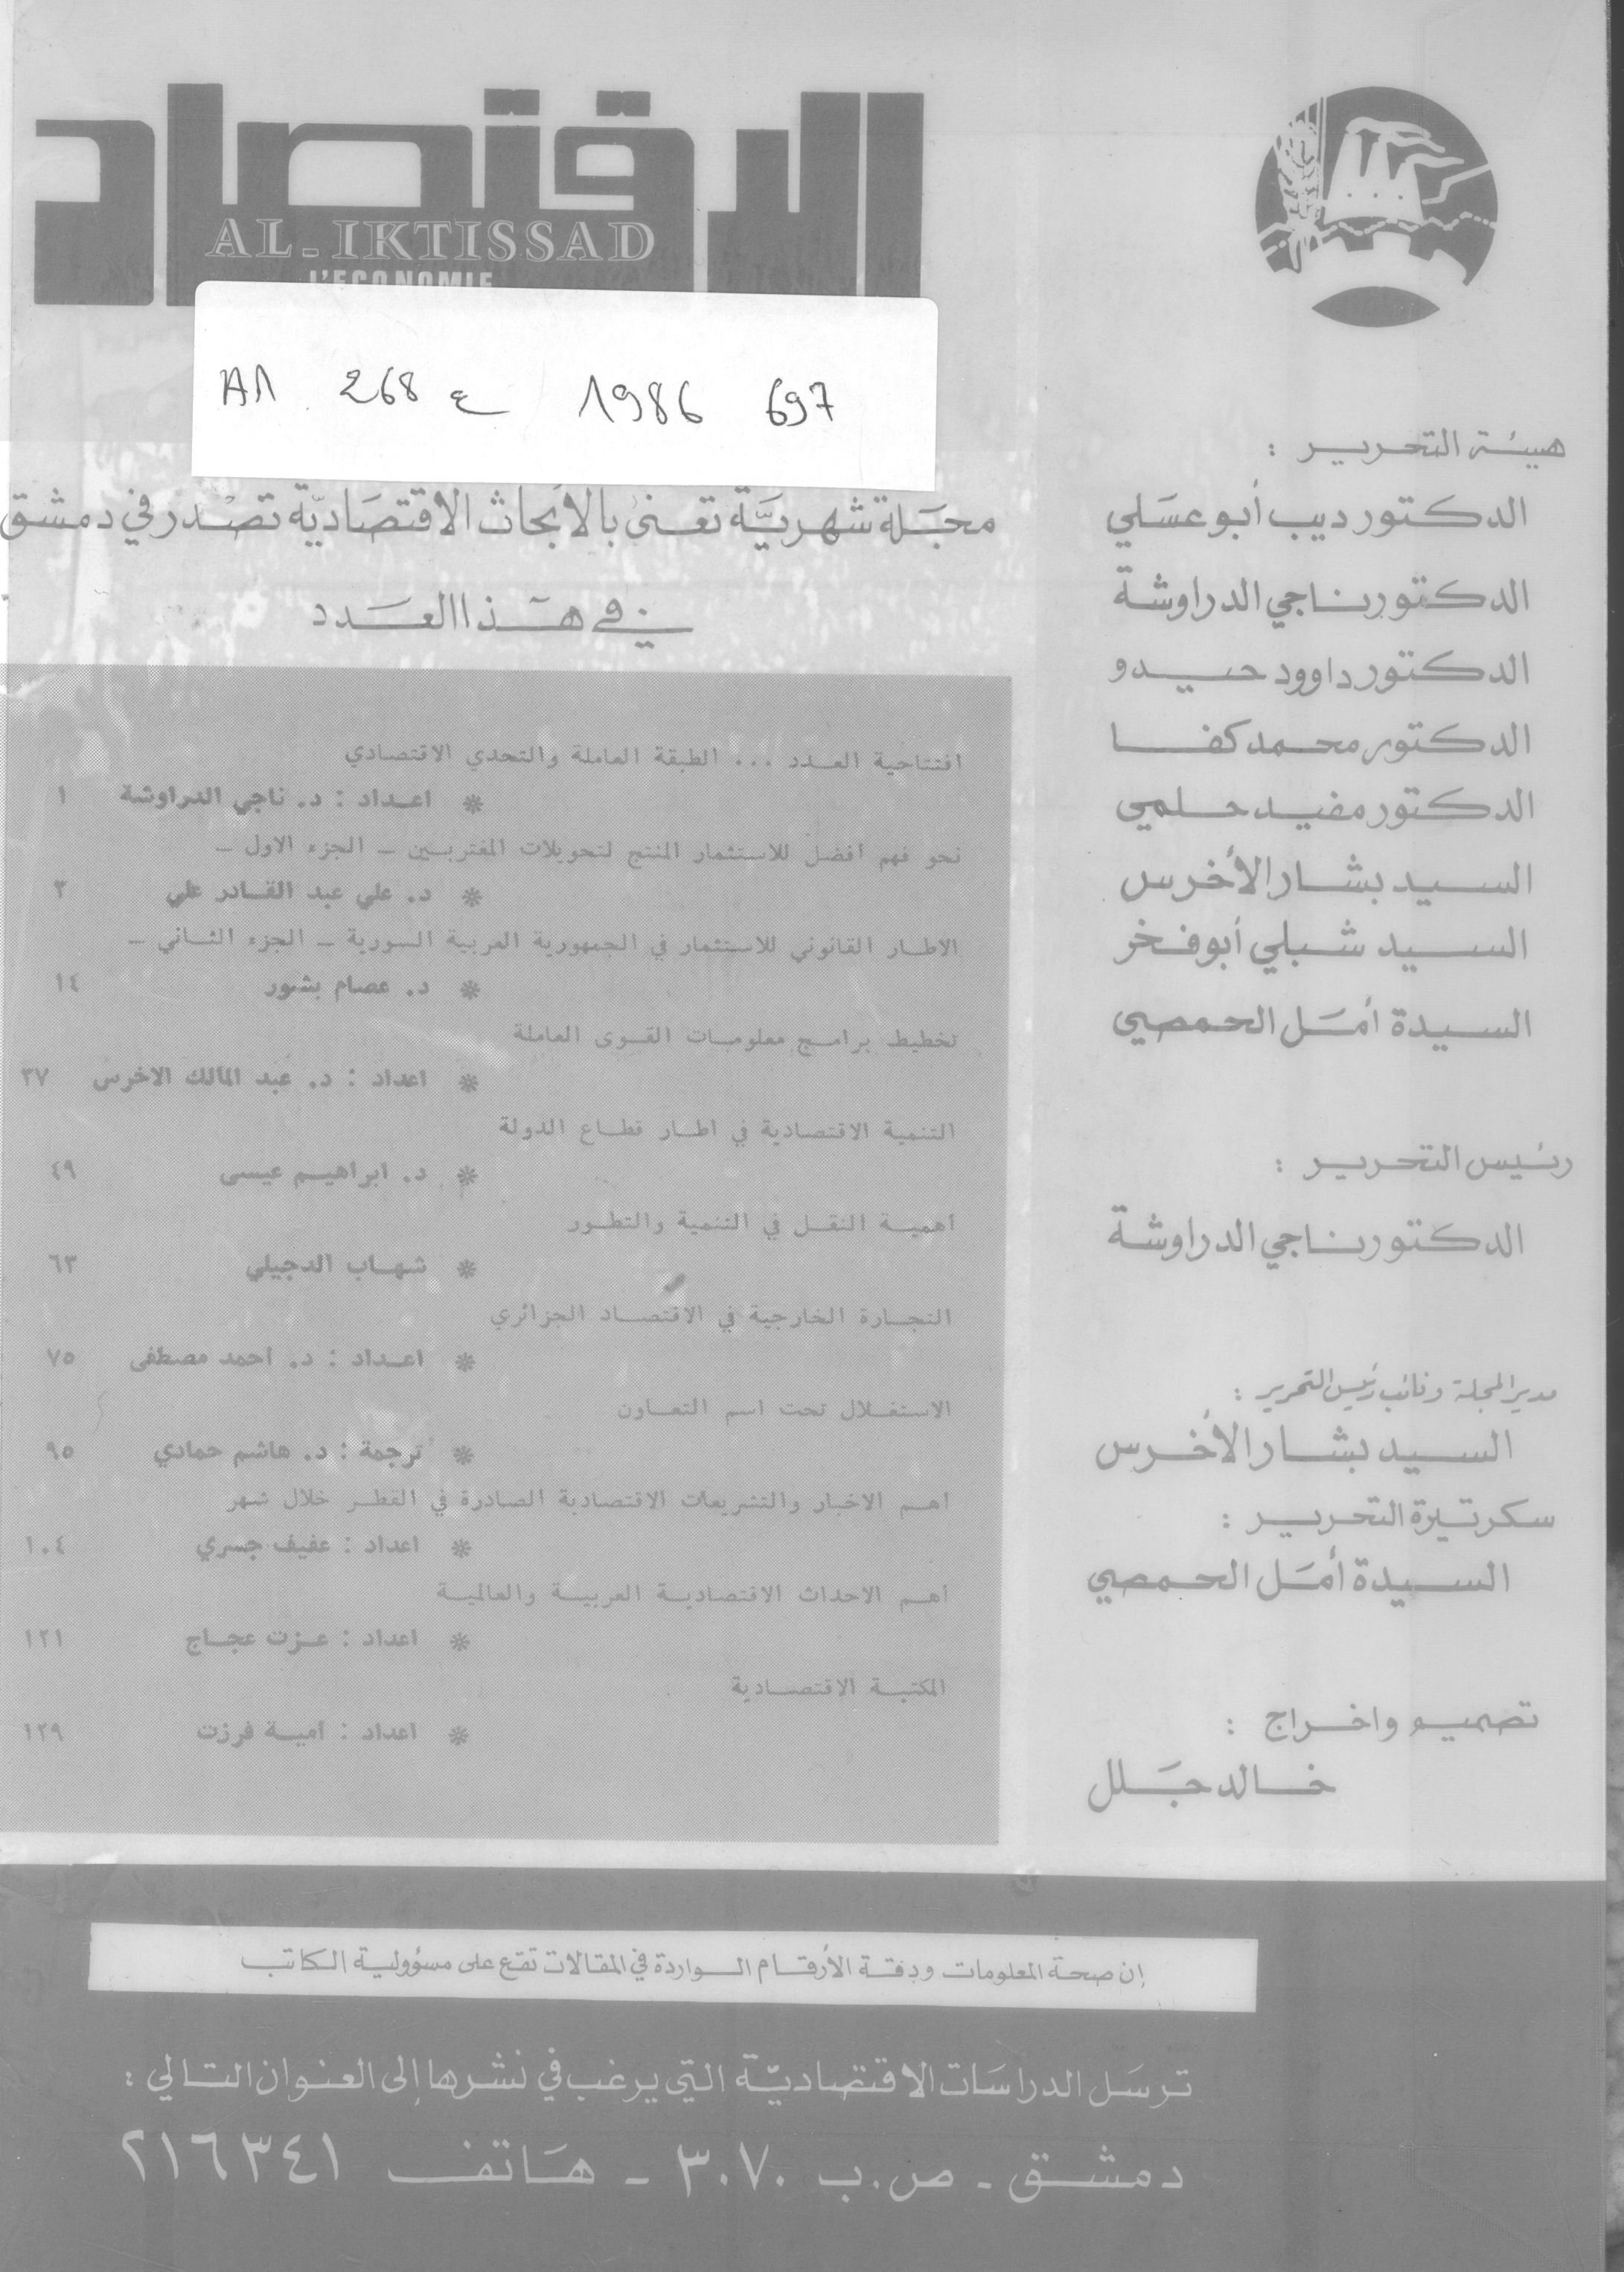 الاقتصاد
AL-IKTISSAD
L'ECONOMIE
268 ع 1986 697
مجلة شهرية تعنى بالأبحاث الاقتصادية تصدر في دمشق
هيئة التحرير :
الدكتور ديب أبو عسلي
الدكتور ناجي الدراوشة
الدكتور داوود حيدو
الدكتور محمد كفا
الدكتور مفيد حلمي
السيد بشار الأخرس
السيد شبلي أبو فخر
السيدة أمل الحمصي
رئيس التحرير :
الدكتور ناجي الدراوشة
مدير المجلة ونائب رئيس التحرير :
السيد بشار الأخرس
سكرتيرة التحرير :
السيدة أمل الحمصي
تصميم واخراج :
خالد جلل
في هذا العدد
افتتاحية العدد ... الطبقة العاملة والتحدي الاقتصادي
* اعداد : د. ناجي الدراوشة ١
نحو فهم أفضل للاستثمار المنتج لتحويلات المغتربين – الجزء الاول –
* د. علي عبد القادر علي ٣
الاطار القانوني للاستثمار في الجمهورية العربية السورية – الجزء الثاني –
* د. عصام بشور ١٤
تخطيط برامج معلومات القوى العاملة
* اعداد : د. عبد المالك الاخرس ٣٧
التنمية الاقتصادية في اطار قطاع الدولة
* د. ابراهيم عيسى ٤٩
أهمية النقل في التنمية والتطور
* شهاب الدجيلي ٦٣
التجارة الخارجية في الاقتصاد الجزائري
* اعداد : د. أحمد مصطفى ٧٥
الاستغلال تحت اسم التعاون
* ترجمة : د. هاشم حمادي ٩٥
أهم الاخبار والتشريعات الاقتصادية الصادرة في القطر خلال شهر
* اعداد : عفيف جسري ١٠٤
أهم الاحداث الاقتصادية العربية والعالمية
* اعداد : عزت عجاج ١٢١
المكتبة الاقتصادية
* اعداد : أمية فرزت ١٢٩
إن صحة المعلومات ودقة الأرقام الواردة في المقالات تقع على مسؤولية الكاتب
ترسل الدراسات الاقتصادية التي يرغب في نشرها إلى العنوان التالي :
دمشق - ص.ب ٣٠٧٠ - هاتف ٢١٦٣٤١